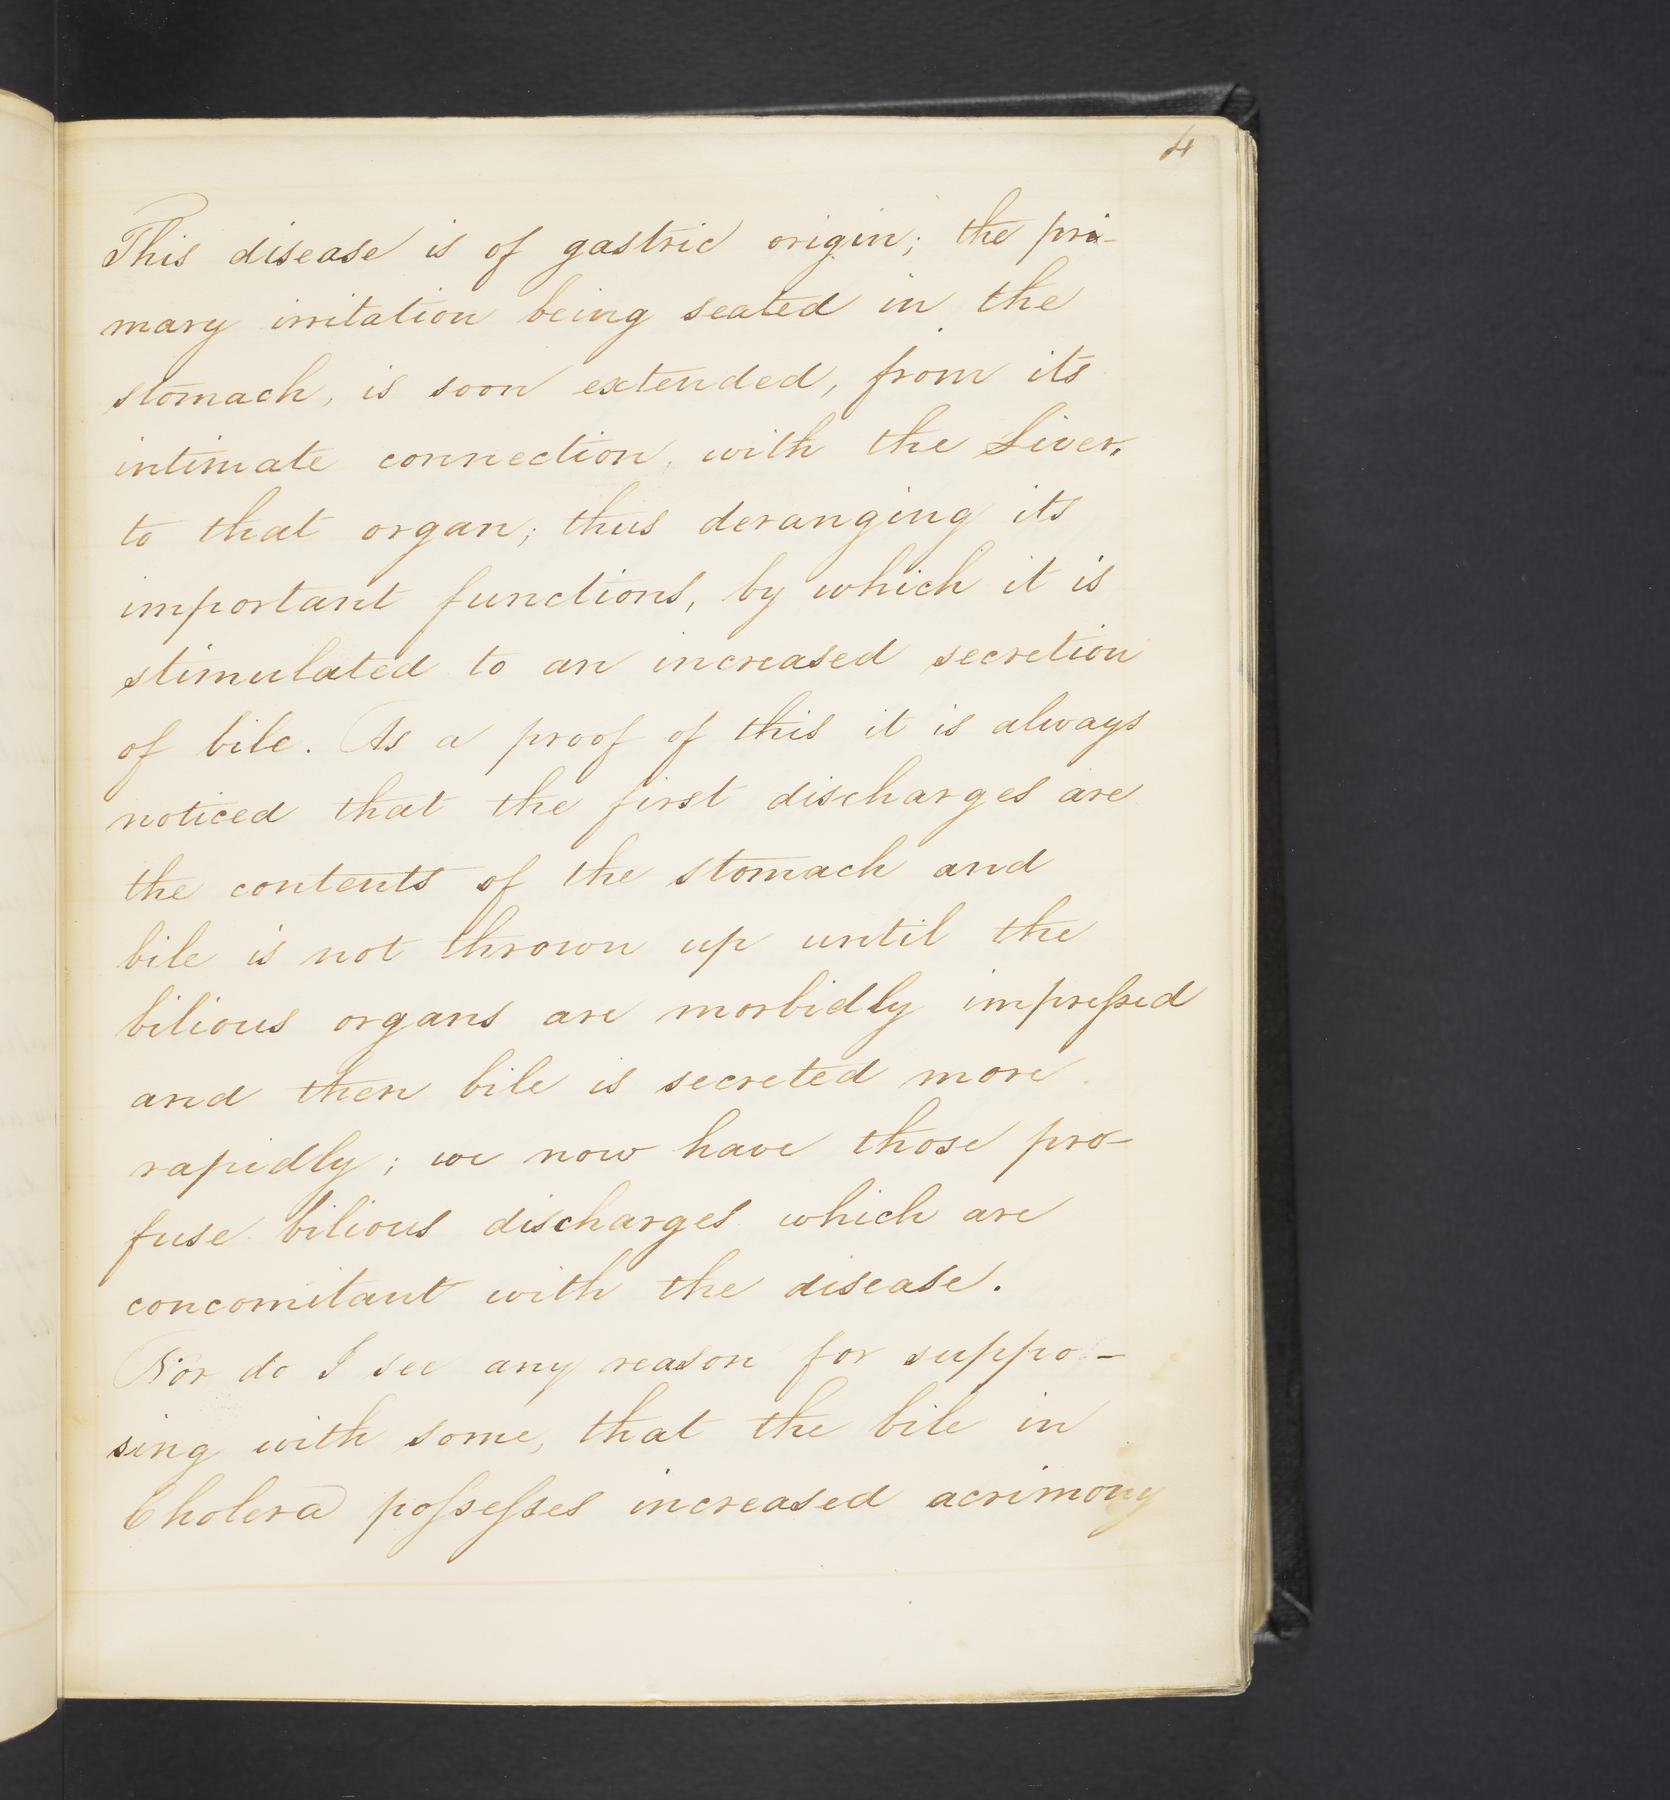 4
This disease is of gastric origin; the pri-
mary irritation being seated in the
stomach, is soon extended, from its
intimate connection, with the Liver,
to that organ; thus deranging its
important functions, by which it is
stimulated to an increased secretion
of bile. As a proof of this it is always
noticed that the first discharges are
the contents of the stomach and
bile is not thrown up until the
bilious organs are morbidly impreſsed
and then bile is secreted more
rapidly; we now have those pro-
fuse bilious discharges which are
concomitant with the disease.
Nor do I see any reason for suppo-
sing with some, that the bile in
Cholera poſseſses increased acrimony